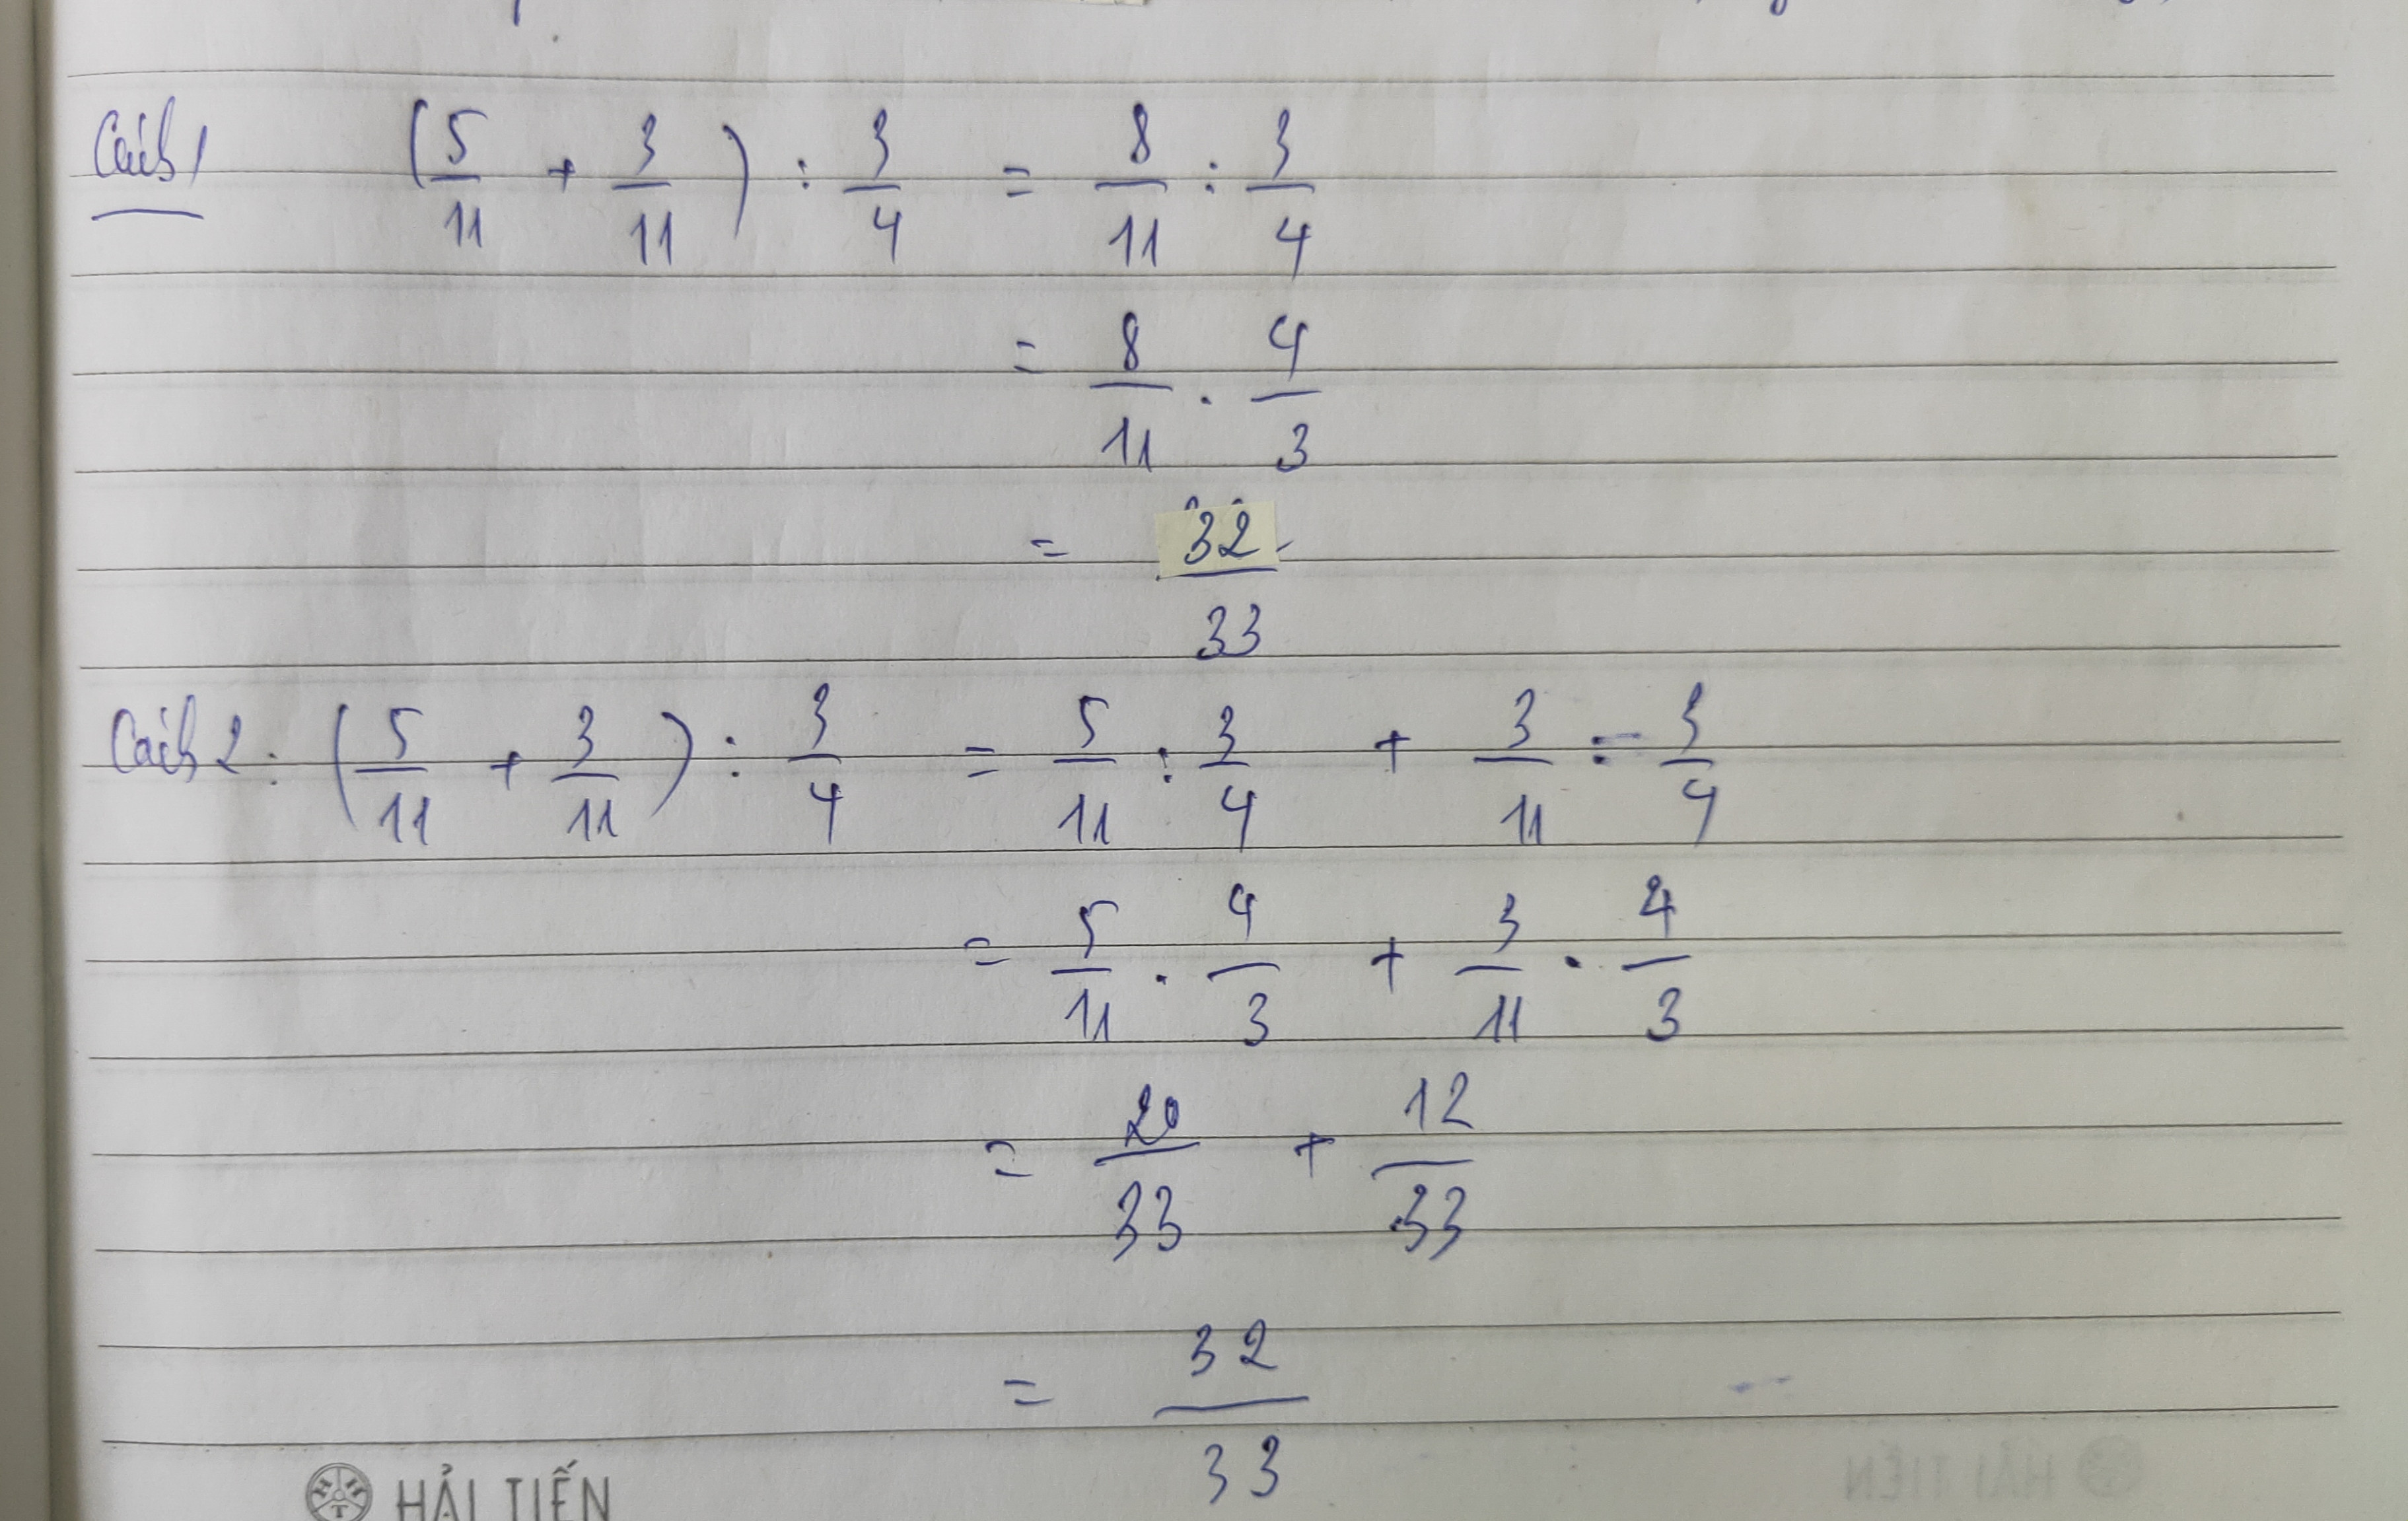 Cách 1 (5/11 + 3/11) : 3/4 = 8/11 : 3/4
= 8/11 . 4/3
= 32/33
Cách 2 : (5/11 + 3/11) : 3/4 = 5/11 : 3/4 + 3/11 : 3/4
= 5/11 . 4/3 + 3/11 . 4/3
= 20/33 + 12/33
= 32/33
HẢI TIẾN